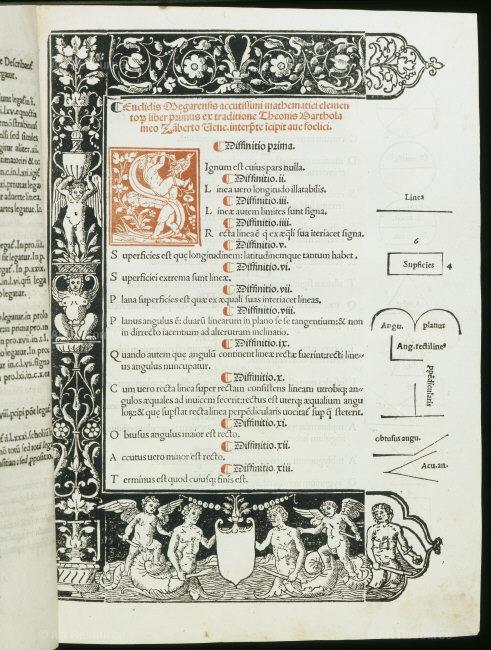 Euclidis Megarensis accutissimi mathematici elemen
torꝝ liber primus ex traditione Theonis Bartholа
meo Zāberto Vene. interp̄te īcipit aue foelici.
¶ Diffinitio prima.
Ignum est cuius pars nulla.
¶ Diffinitio. ii.
L inea uero longitudo illatabilis.
¶ Diffinitio. iii.
L ineæ autem limites sunt signa.
¶ Diffinitio. iiii.
R ecta linea ē q̄ ex æq̄li sua iteriacet signa.
¶ Diffinitio. v.
S uperficies est quę longitudinem: latitudinemque tantum habet.
¶ Diffinitio. vi.
S uperficiei extrema sunt lineæ.
¶ Diffinitio. vii.
P lana superficies est quæ ex æquali suas interiacet lineas.
¶ Diffinitio. viii.
P lanus angulus ē: duarū linearum in plano se se tangentium: & non
in dirrecto iacentium ad alterutram inclinatio.
¶ Diffinitio. ix.
Q uando autem quæ angulū continent lineæ rectæ fuerint: rectiline⁹
us angulus nuncupatur.
¶ Diffinitio. x.
C um uero recta linea super rectam consistens lineam utrobiq; an-
gulos æquales ad inuicem fecerit: rectus est uterq; æqualium angu
loꝝ: & quę supstat recta linea perpēdicularis uocitaſ sup q̄ steterit.
¶ Diffinitio. xi.
O btusus angulus maior est recto.
¶ Diffinitio. xii.
A ccutus uero minor est recto.
¶ Diffinitio. xiii.
T erminus est quod cuiusq; finis est.
Linea
6
Supficies 4
Angu. planus
Ang. rectiline⁹
ppēdicularis
obtusus angu.
Acu. an.